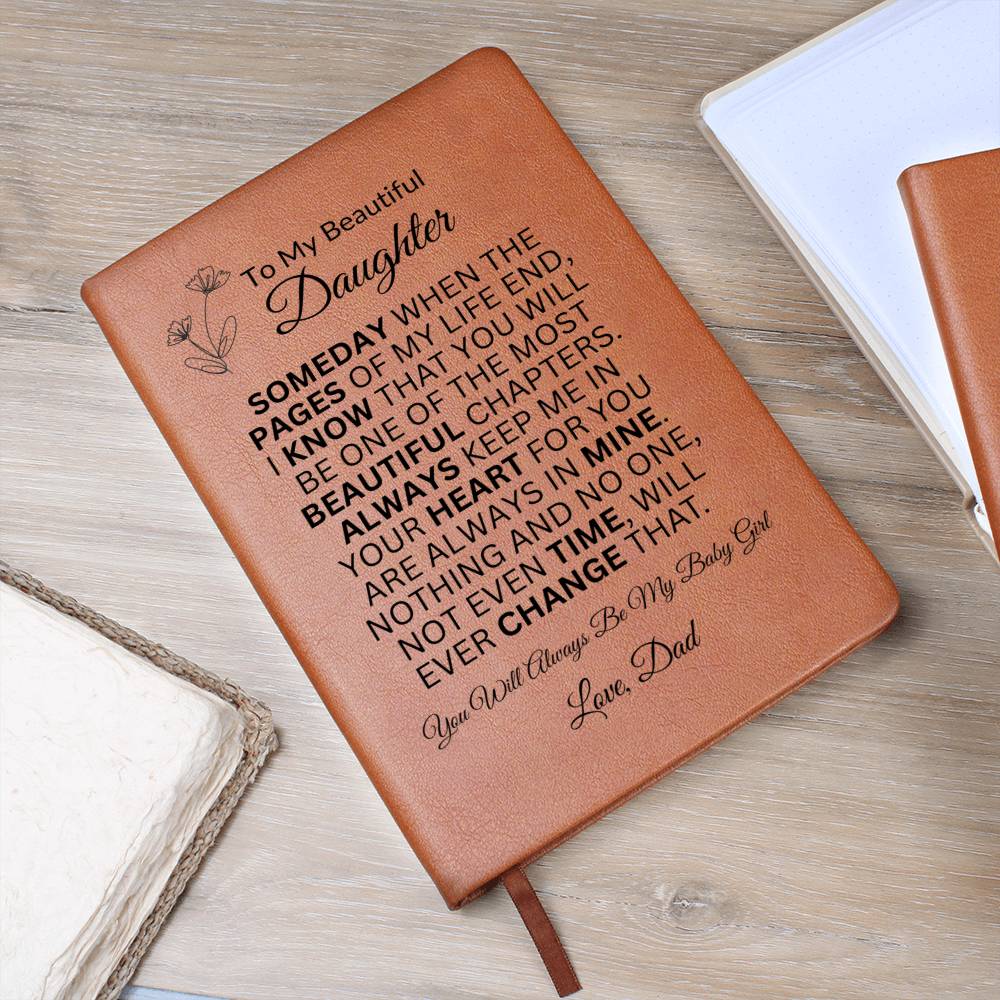 To My Beautiful
Daughter
SOMEDAY WHEN THE
PAGES OF MY LIFE END,
I KNOW THAT YOU WILL
BE ONE OF THE MOST
BEAUTIFUL CHAPTERS.
ALWAYS KEEP ME IN
YOUR HEART FOR YOU
ARE ALWAYS IN MINE.
NOTHING AND NO ONE,
NOT EVEN TIME, WILL
EVER CHANGE THAT.
You Will Always Be My Baby Girl
Love, Dad